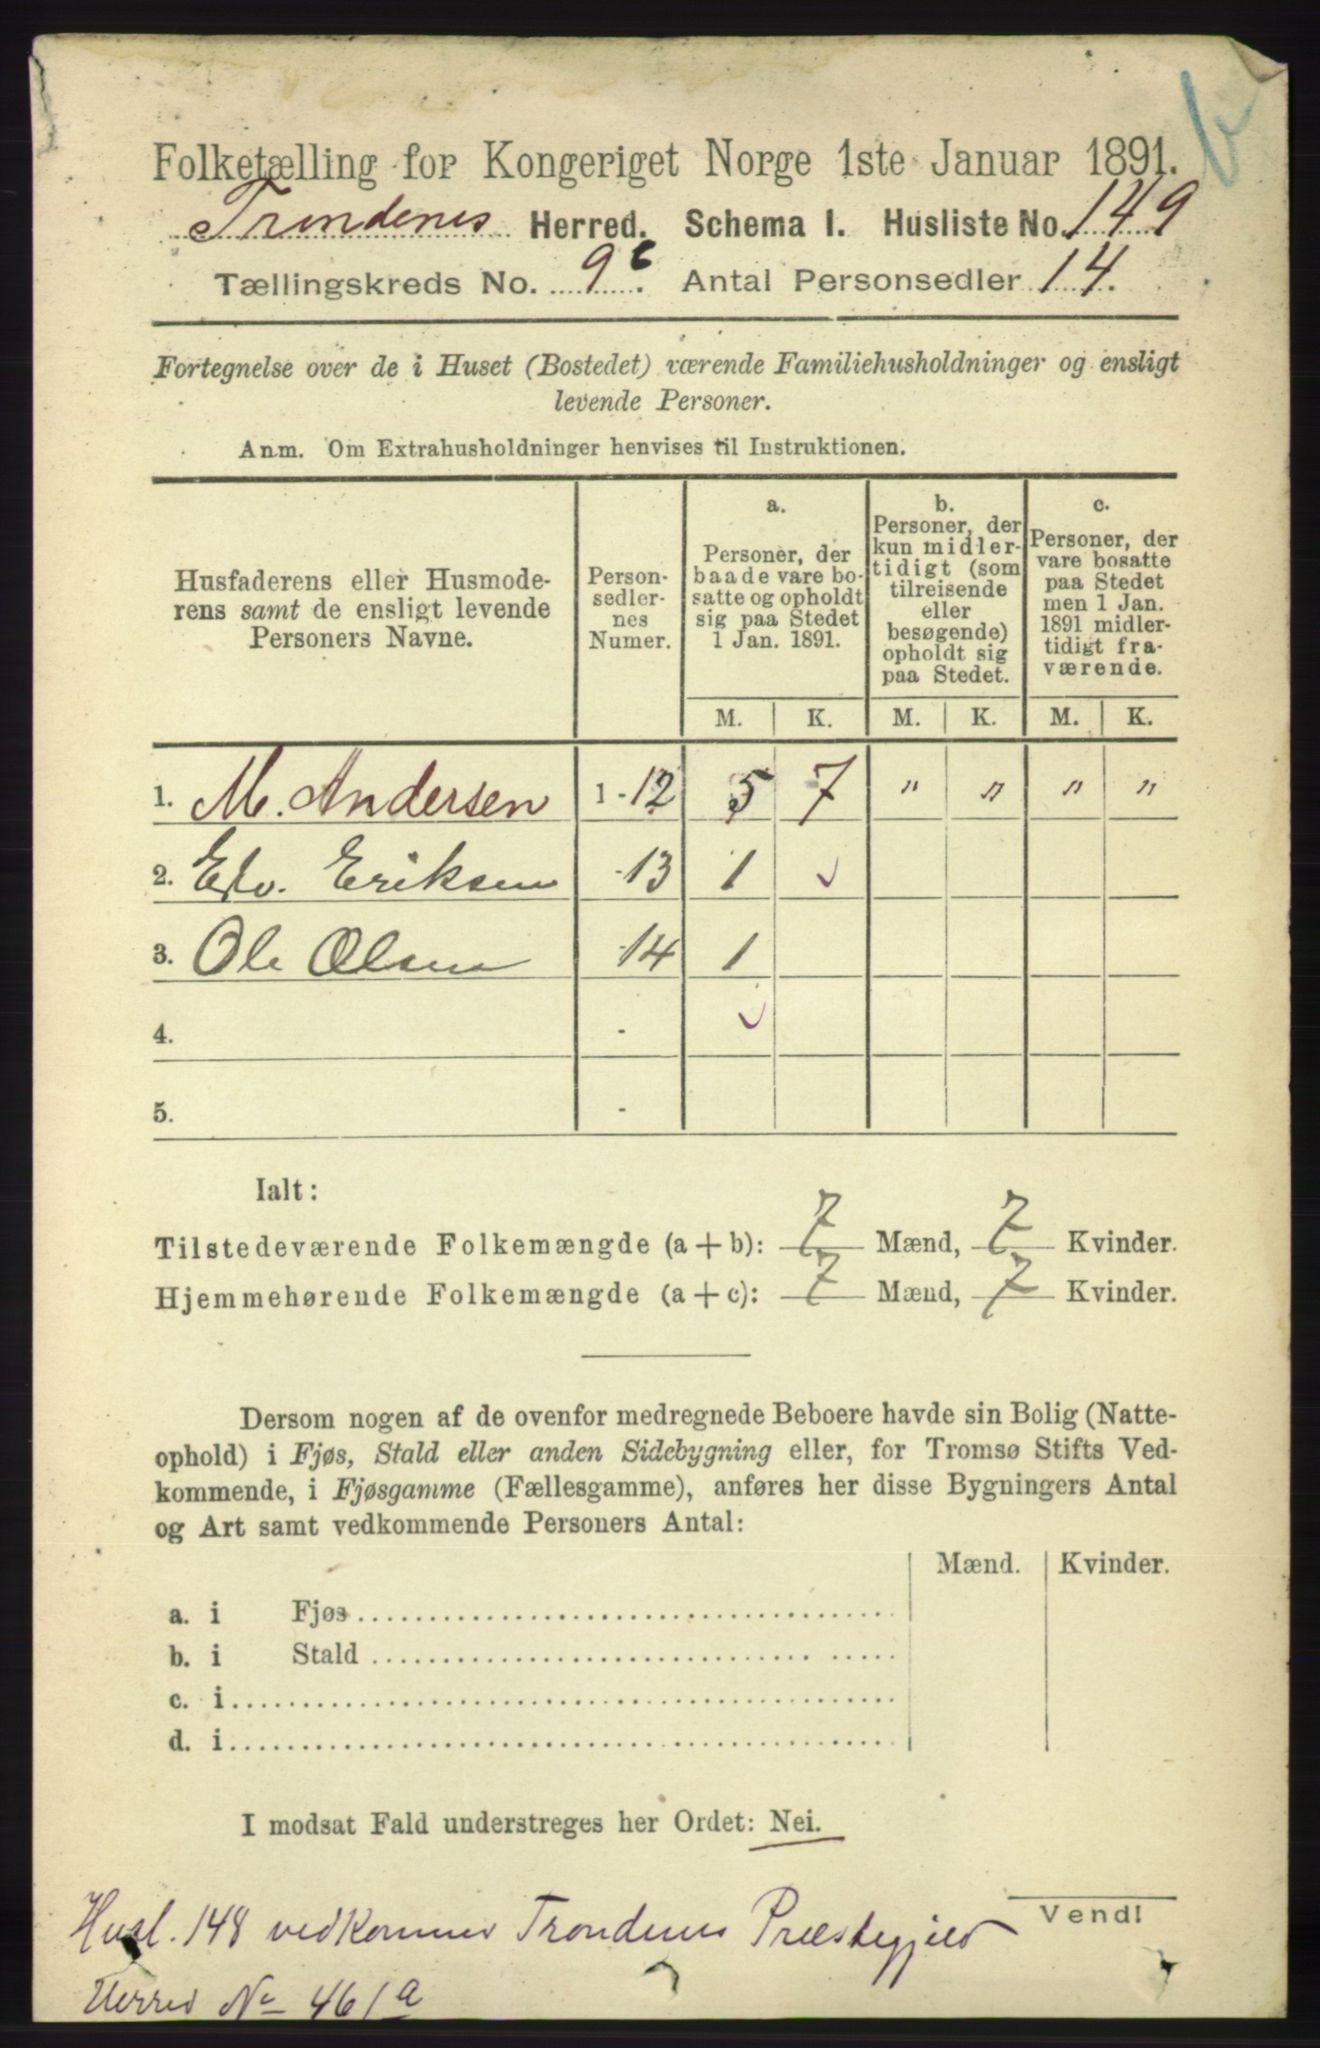 Folketælling for Kongeriget Norge 1ste Januar 1891.
Trondenes Herred. Schema I. Husliste No. 149
Tællingskreds No. 9c. Antal Personsedler 14.
Fortegnelse over de i Huset (Bostedet) værende Familiehusholdninger og ensligt
levende Personer.
Anm. Om Extrahusholdninger henvises til Instruktionen.
Husfaderens eller Husmode-
rens samt de ensligt levende
Personers Navne.
Person-
sedler-
nes
Numer.
a.
Personer, der
baade vare bo-
satte og opholdt
sig paa Stedet
1 Jan. 1891.
b.
Personer, der
kun midler-
tidigt (som
tilreisende
eller
besøgende)
opholdt sig
paa Stedet.
c.
Personer, der
vare bosatte
paa Stedet
men 1 Jan.
1891 midler-
tidigt fra-
værende.
M. K. M. K. M. K.
1. M. Andersen 1-12 5 7 " " " "
2. Edv. Eriksen -13 1
3. Ole Olsen -14 1
4. -
5. -
Ialt:
Tilstedeværende Folkemængde (a+b): 7 Mænd, 7 Kvinder.
Hjemmehørende Folkemængde (a+c): 7 Mænd, 7 Kvinder.
Dersom nogen af de ovenfor medregnede Beboere havde sin Bolig (Natte-
ophold) i Fjøs, Stald eller anden Sidebygning eller, for Tromsø Stifts Ved-
kommende, i Fjøsgamme (Fællesgamme), anføres her disse Bygningers Antal
og Art samt vedkommende Personers Antal:
Mænd. Kvinder.
a. i Fjøs
b. i Stald
c. i
d. i
I modsat Fald understreges her Ordet: Nei.
Vend!
Husl. 148 vedkommer Trondenes Præstegjeld
Herred No 461a